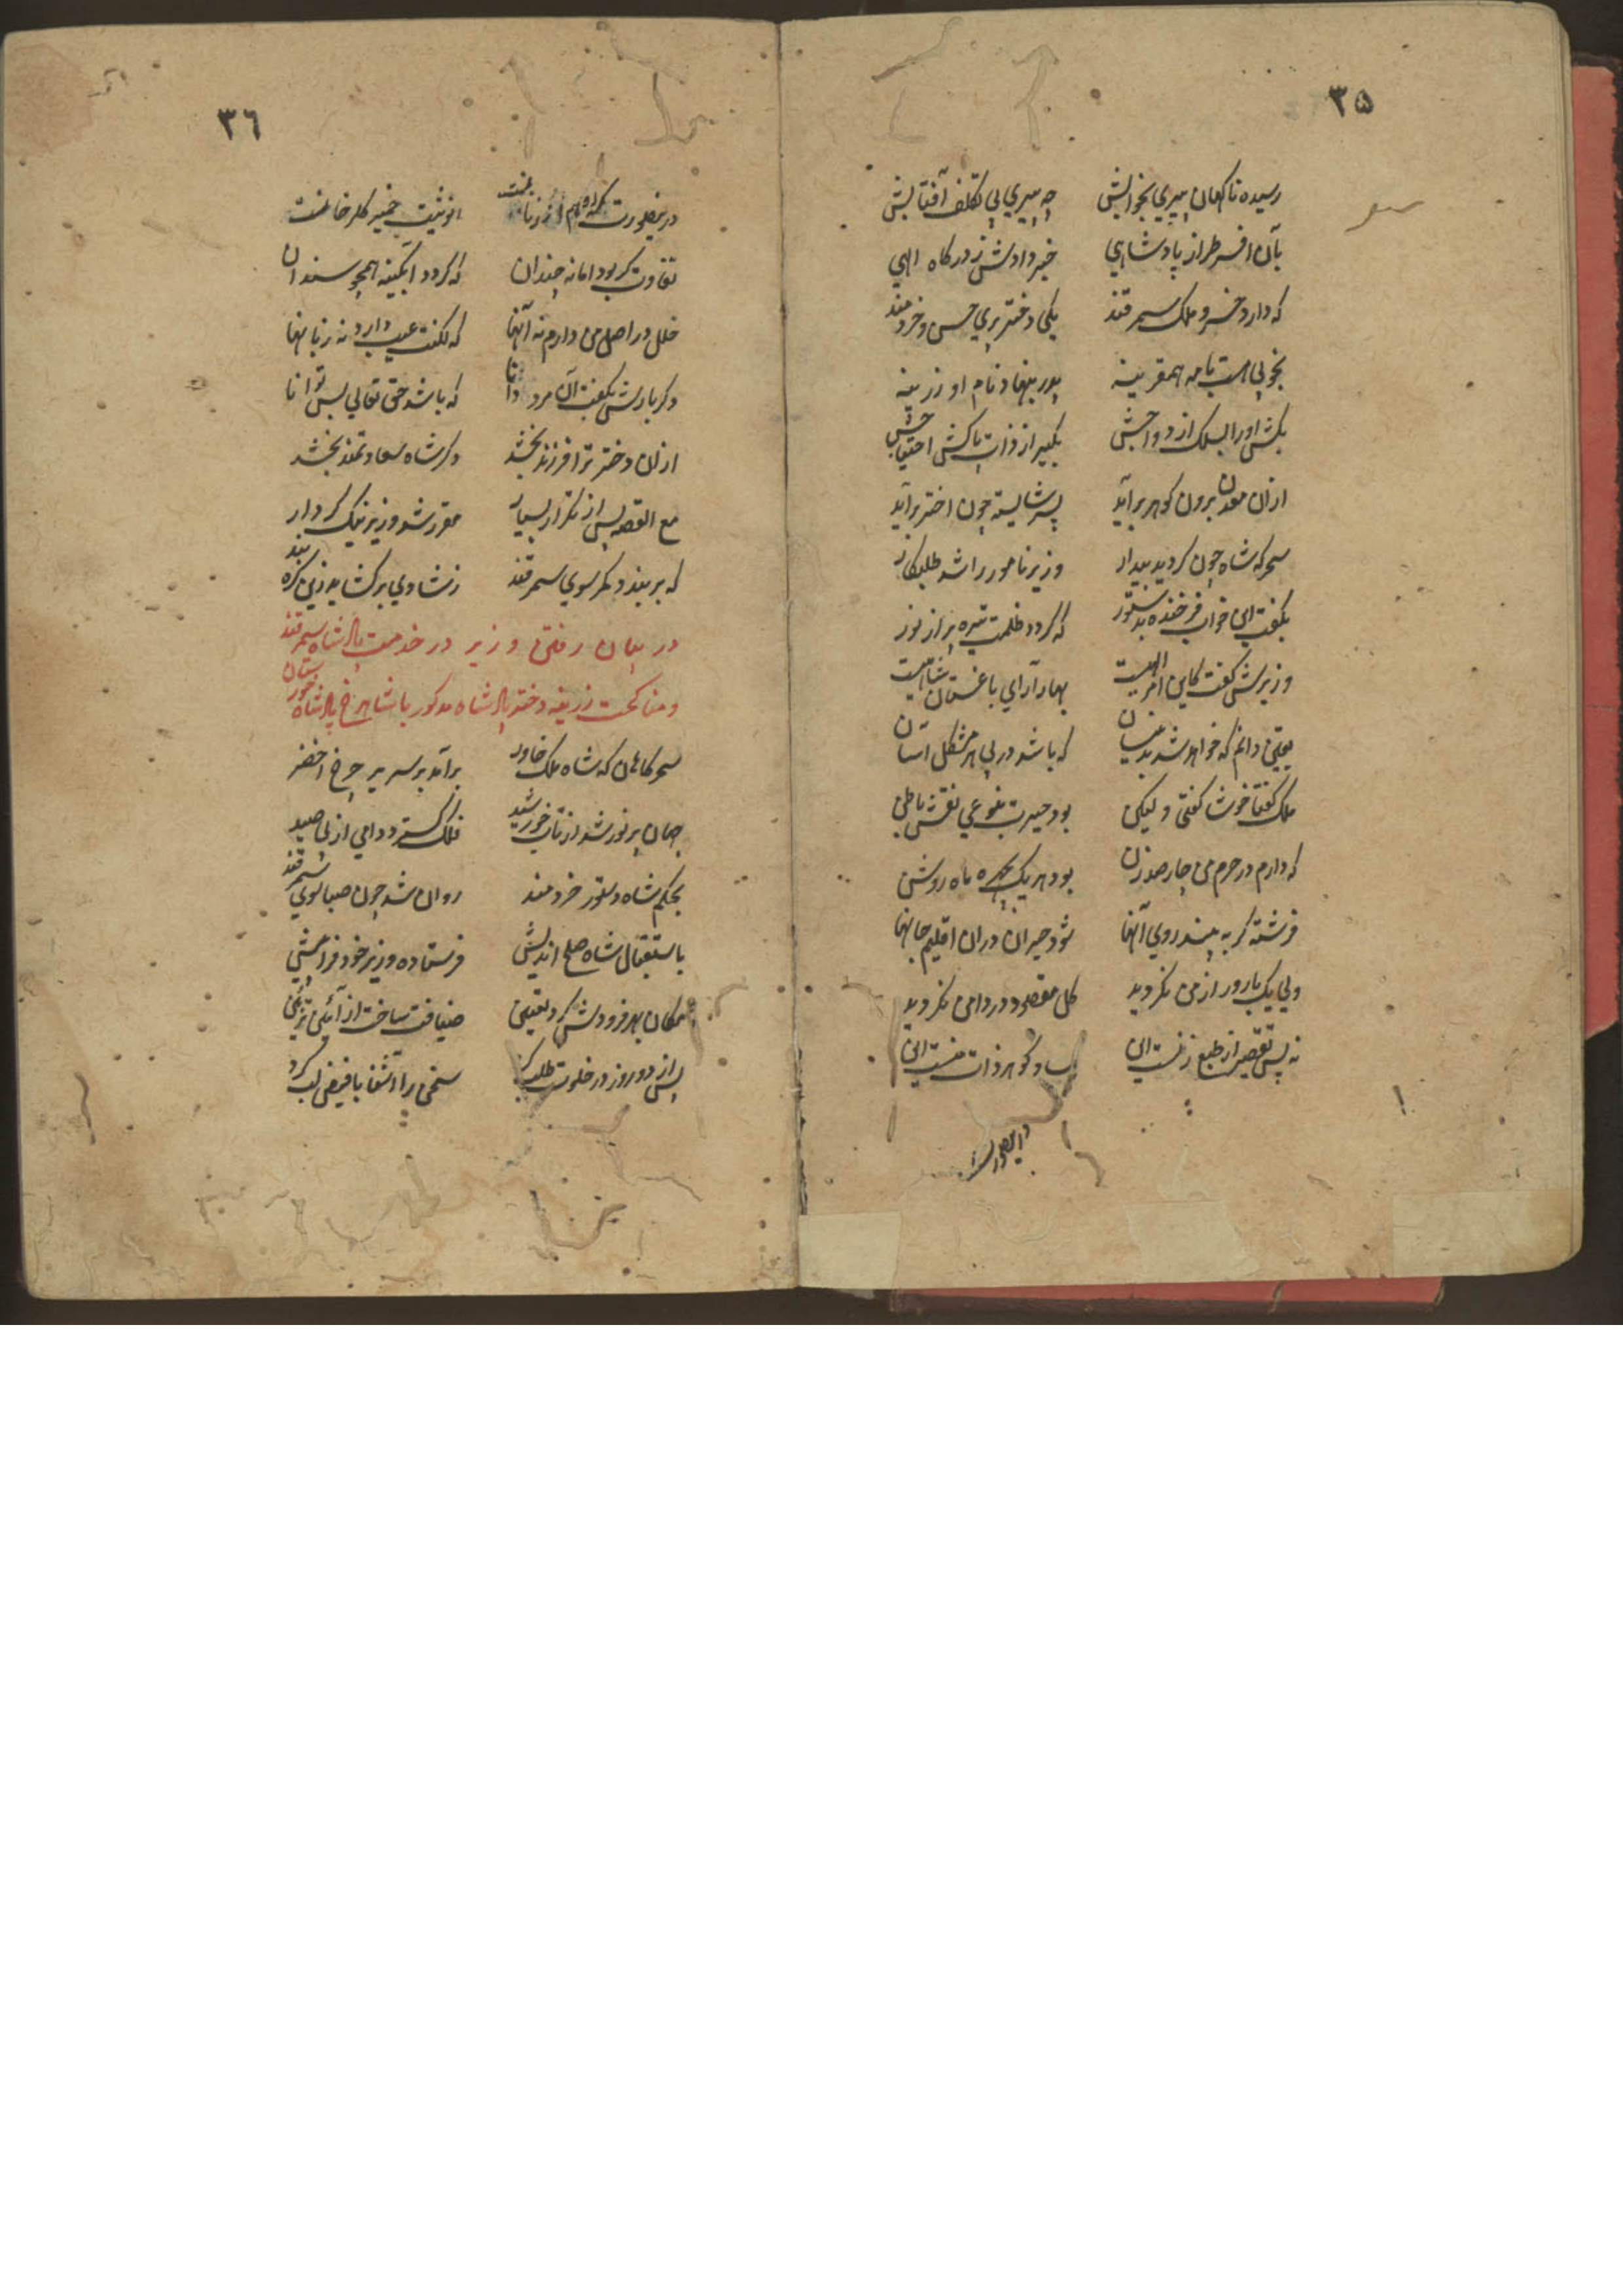 ۳۵
رسیده ناکهان پیری بخوابش چه پیری بی تکلف آفتابش
بآن افسر طراز پادشاهی خبر دادش ز درکاه الهی
که دارد خسرو ملک سمرقند یکی دختر پری حسن و خردمند
بخوبی هست بامه همقرینه پدر بنهاد نام او زرینه
بکش او را بسلک ازدواجش بکیر از ذات پاکش احتیاجش
ازان معدن برون کوهر برآید پسر شایسته چون اختر برآید
سحرکه شاه چون کردید بیدار وزیر نامور را شد طلبکار
بکفت این خواب فرخنده بدستور که کردد ظلمت تیره پر از نور
وزیرش کفت کاین امر الهیست بهار آرای باغستان شاهیست
یقین دانم که خواهد شد بدینسان که باشد در پی هر مشکل آسان
ملک کفتا خوش کفتی ولیکن بود حیرت بنوعی نقش باطن
که دارم در حرم من چار صد زن بود هر یک بچهره ماه روشن
فرشته کر به بیند روی آنها شود حیران دران اقلیم جانها
ولی یک بارور از من نکردید کل مقصود در دامن نکردید
نه پس تقصیر از طبع زنست این کوهر ذات منست این
درینصورت
۳٦
درینصورت انوثیت خمیر
تفاوت کر بود اما نه چندان که کردد آبکینه همچو سندان
خلل در اصل من دارم نه آنها که لکنت عیب دارد نه زبانها
دکر بارش بکفت آن مرد دانا که باشد حق تعالی بس توانا
ازان دختر ترا فرزند بخشد دکر شاه سعادتمند بخشد
مع القصه پس از تکرار بسیار مقرر شد وزیر نیک کردار
که بر بندد کمر سوی سمرقند ز شادی برکشاید زین کره بند
در بیان رفتن وزیر در خدمت پادشاه سمرقند
و مناکحت زرینه دختر پادشاه مذکور با شاهرخ پادشاه خورستان
سحرکاهان که شاه ملک خاور برآمد بر سریر چرخ اخضر
جهان پر نور شد از تاب خورشید فلک کسترد دامی از پی صید
بحکم شاه دستور خردمند روان شد چون صبا سوی سمرقند
باستقبال شاه صلح اندیش فرستاده وزیر خود فرا پیش
مکان بهر فرودش کرد تعیین ضیافت ساخت از آئین تزئین
پس از دو روز در خلوت طلب کرد سخن را آشنا با فیض لب کرد